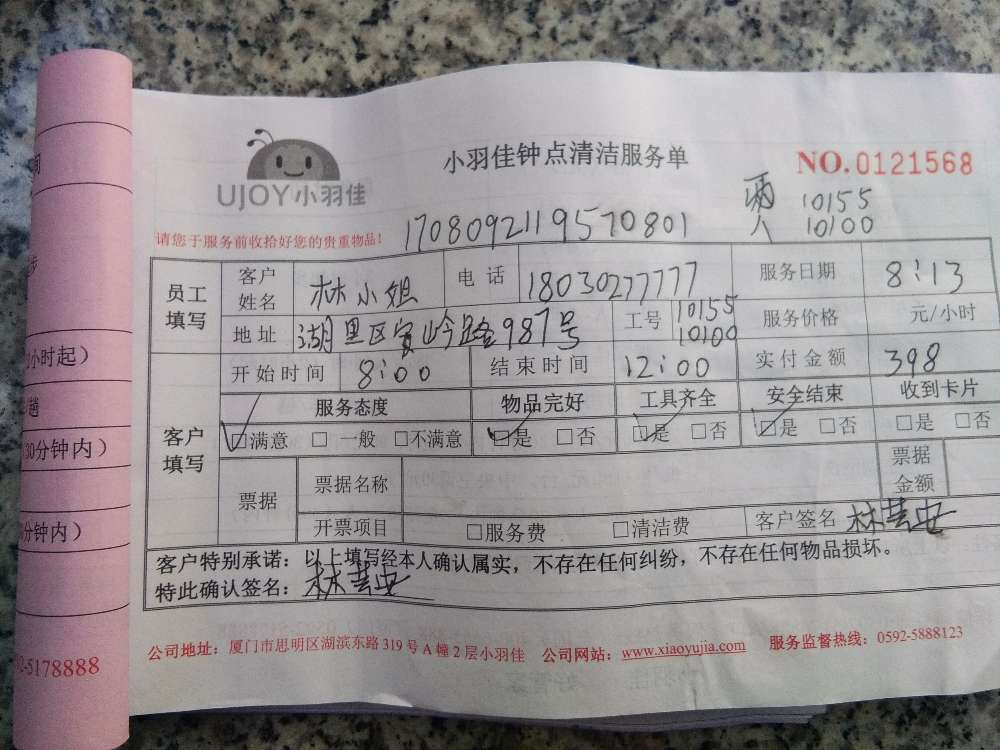 UJOY小羽佳
小羽佳钟点清洁服务单
NO.0121568
两人 10155
10100
请您于服务前收拾好您的贵重物品!
1708092119570801
员工填写
客户姓名 林小姐 电话 18030277777 服务日期 8:13
地址 湖里区 路987号 工号 10155 10100 服务价格 元/小时
客户填写
开始时间 8:00 结束时间 12:00 实付金额 398
服务态度 物品完好 工具齐全 安全结束 收到卡片
☑满意 □一般 □不满意 ☑是 □否 ☑是 □否 ☑是 □否 □是 □否
票据 票据名称 票据金额
开票项目 □服务费 □清洁费 客户签名
客户特别承诺：以上填写经本人确认属实，不存在任何纠纷，不存在任何物品损坏。
特此确认签名：
公司地址：厦门市思明区湖滨东路319号A幢2层小羽佳 公司网站：www.xiaoyujia.com 服务监督热线：0592-5888123
小时起）
趟
30分钟内）
分钟内）
2-5178888